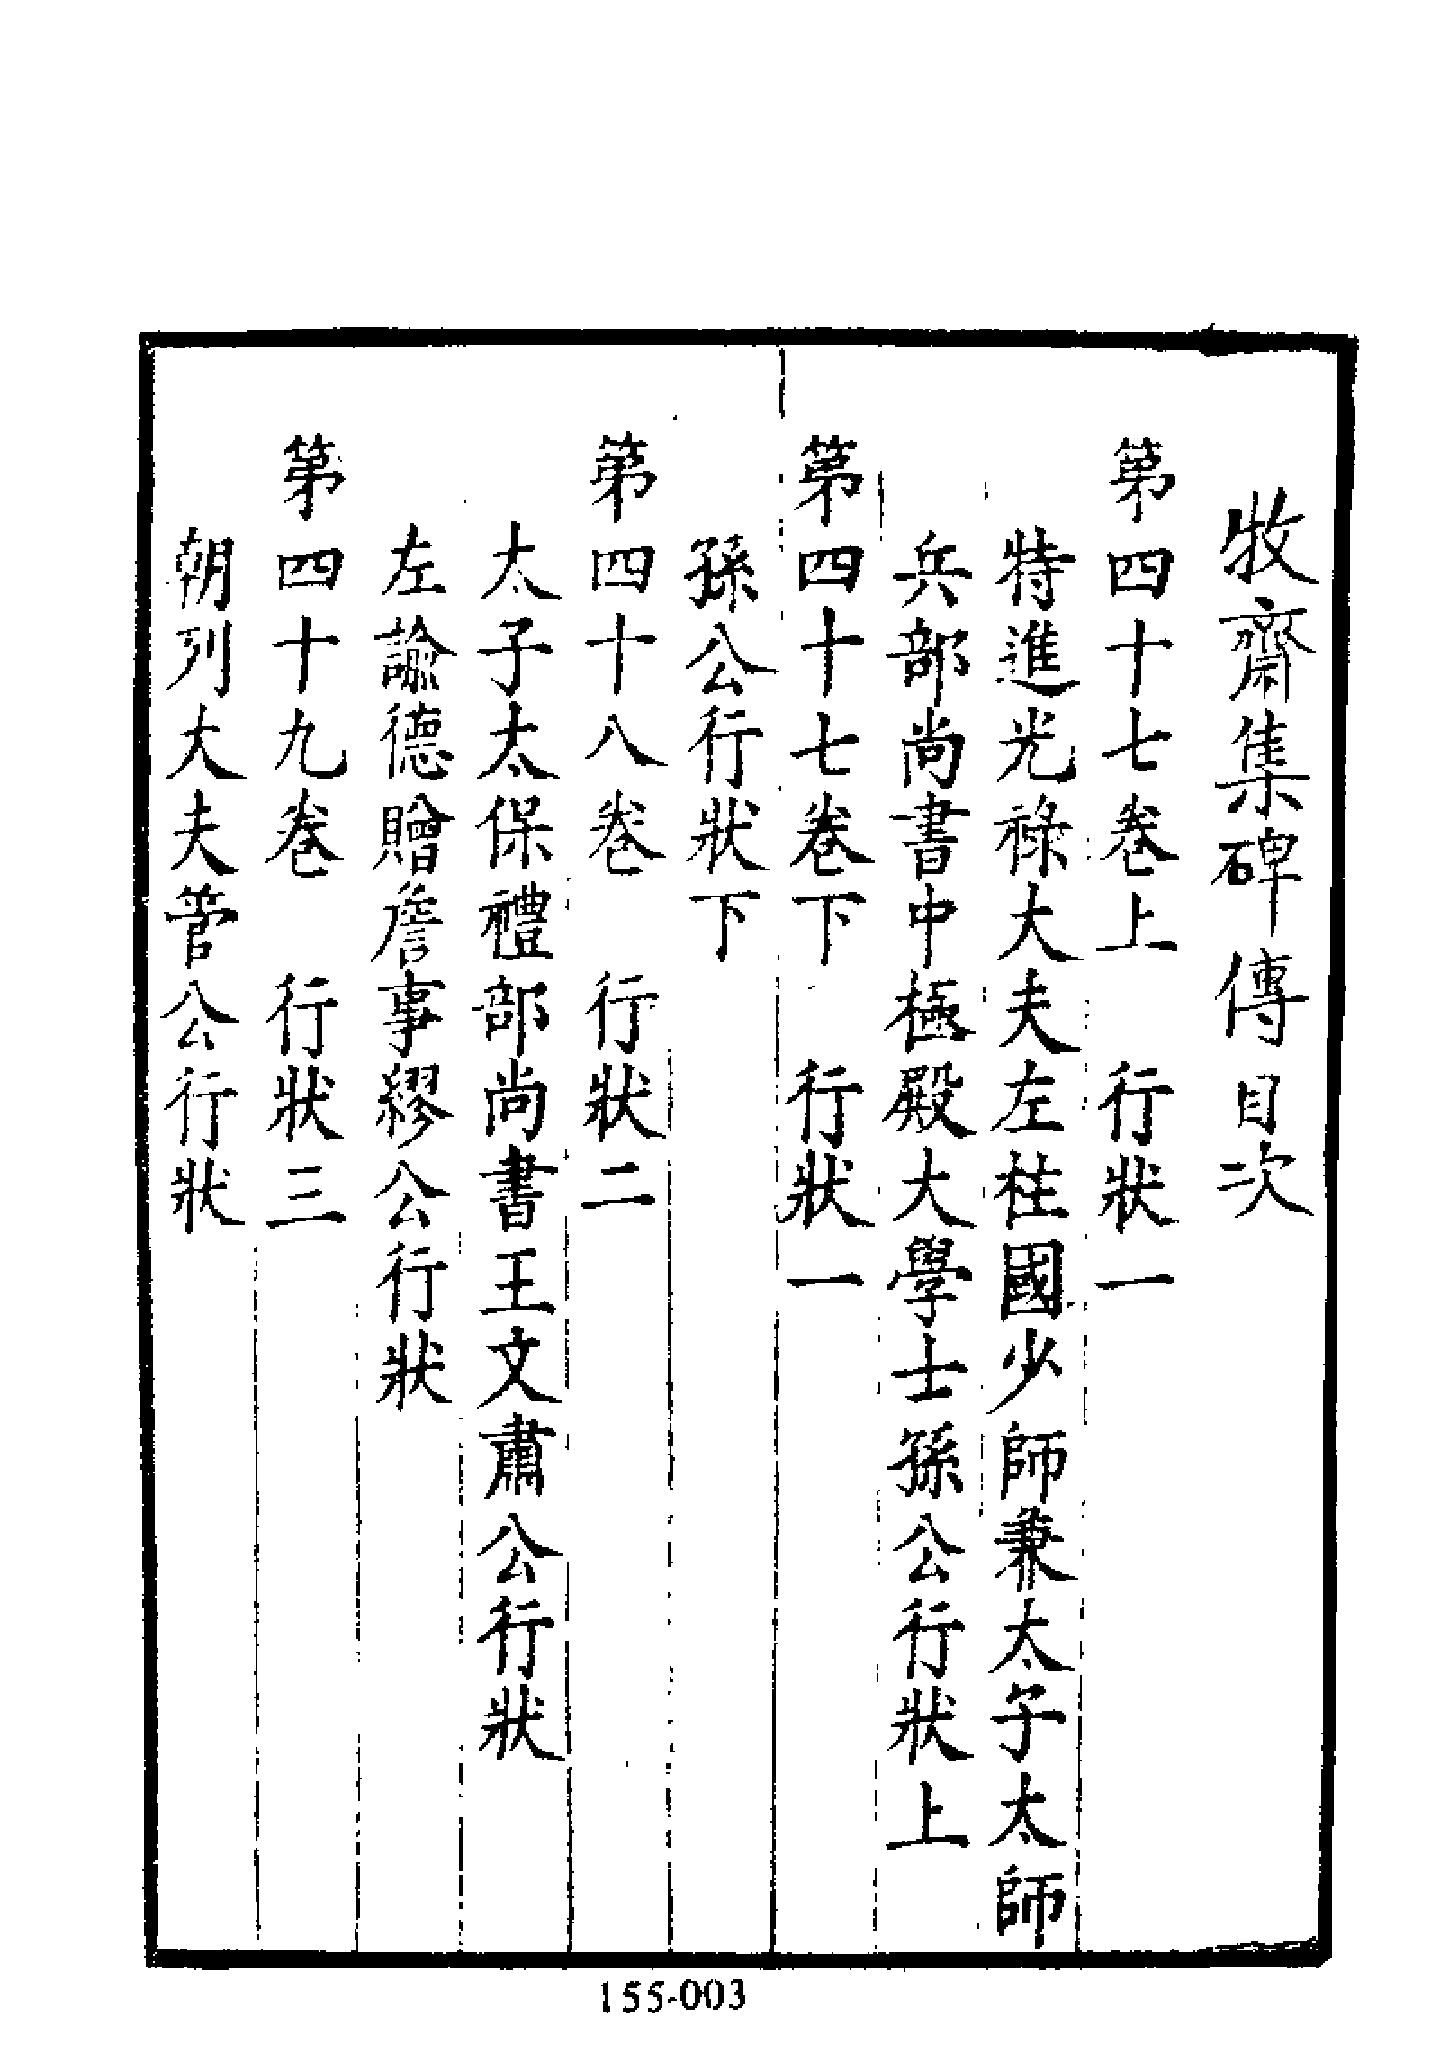 牧齋集碑傳目次
第四十七卷上　行狀一
特進光祿大夫左柱國少師兼太子太師
兵部尚書中極殿大學士孫公行狀上
第四十七卷下　行狀一
孫公行狀下
第四十八卷　行狀二
太子太保禮部尚書王文肅公行狀
左諭德贈詹事繆公行狀
第四十九卷　行狀三
朝列大夫管公行狀
155-003